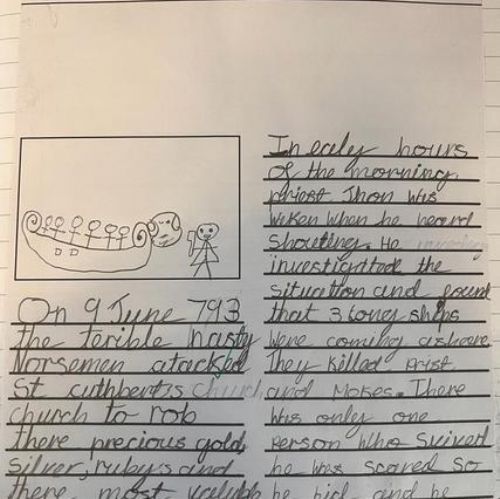 On 9 June 793
the terible nasty
Norsemen atacked
St cuthbert's Church
church to rob
there precious gold,
silver, ruby's and
there most
In ealy hours
of the morning,
priest Jhon was
waken when he heard
shouting. He
investigatod the
situation and found
that 3 long ships
were coming ashoere
They killed prist
and Mokes. There
Was only one
person Who suived
he was scared so
he hid and he